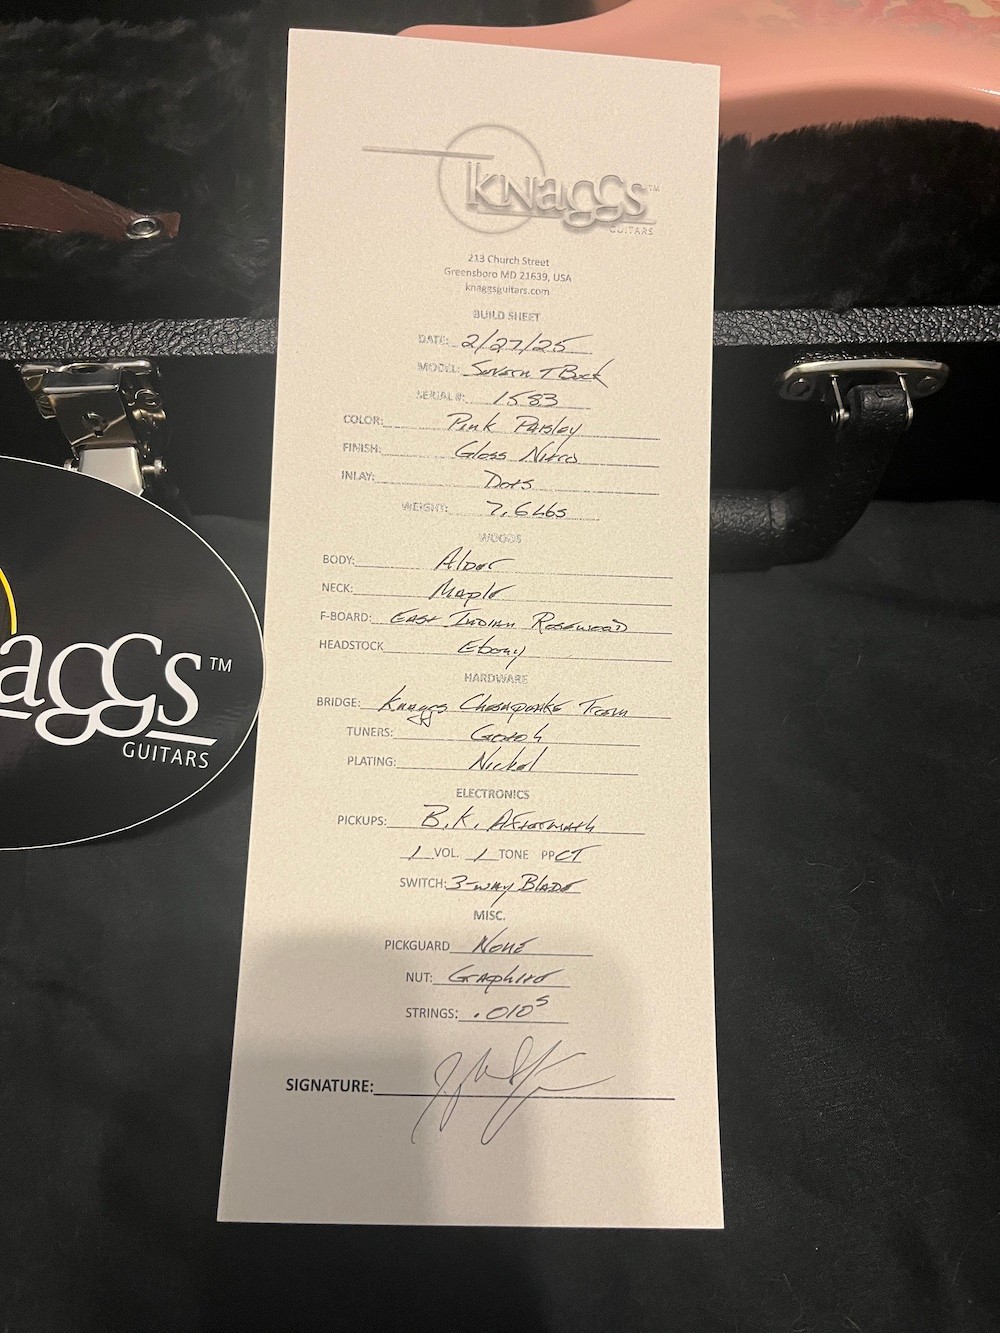 KNaGGS™
GUITARS
213 Church Street
Greensboro MD 21639, USA
knaggsguitars.com
BUILD SHEET
DATE: 2/27/25
MODEL: Severn T Buck
SERIAL #: 1583
COLOR: Pink Paisley
FINISH: Gloss Nitro
INLAY: Dots
WEIGHT: 7.6 Lbs
WOODS
BODY: Alder
NECK: Maple
F-BOARD: East Indian Rosewood
HEADSTOCK Ebony
HARDWARE
BRIDGE: Knaggs Chesapeake Trem
TUNERS: Gotoh
PLATING: Nickel
ELECTRONICS
PICKUPS: B.K. Aftermath
1 VOL. 1 TONE PPCT
SWITCH: 3-way Blade
MISC.
PICKGUARD None
NUT: Graphite
STRINGS: .010s
SIGNATURE:
aGGS™
GUITARS